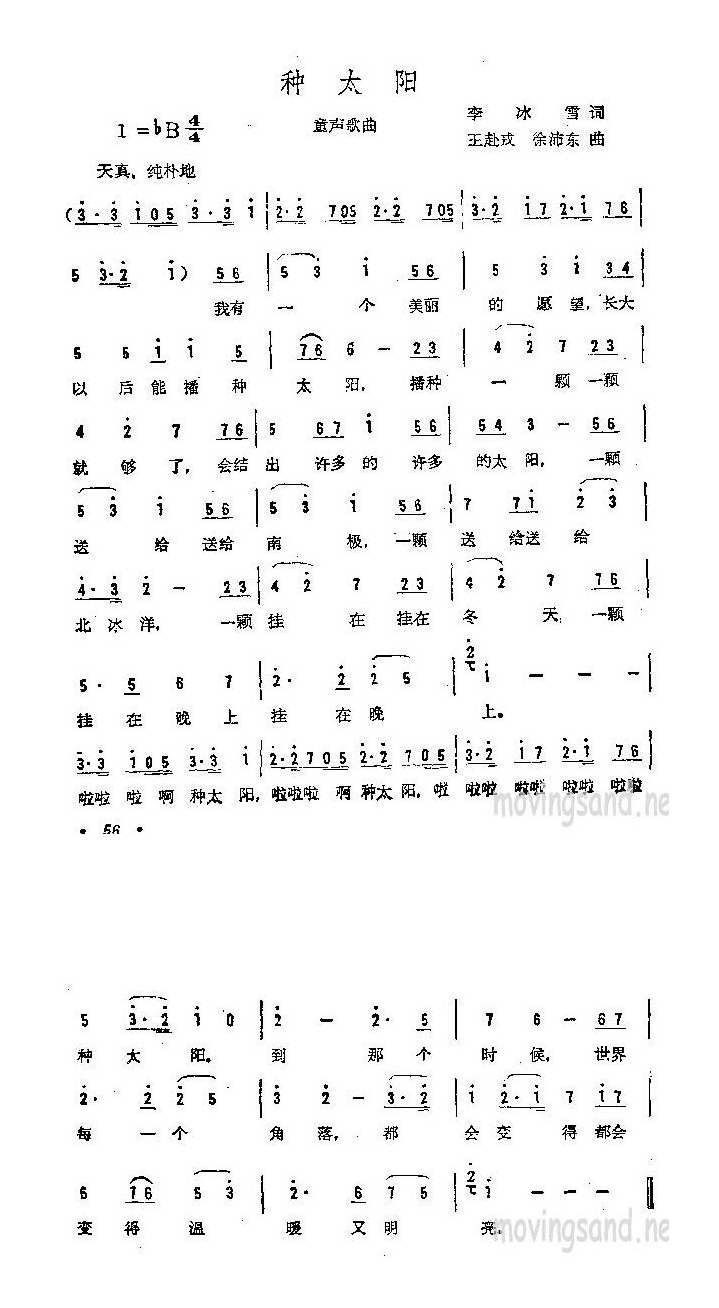 种太阳
李冰雪 词
1=♭B 4/4 童声歌曲
王赴戎 徐沛东 曲
天真、纯朴地
(3·3 1 0 5 3·3 1 | 2·2 7 0 5 2·2 7 0 5 | 3·2 1 7 2·1 7 6 |
5 3·2 1) 5 6 | 5 3 1 5 6 | 5 3 1 3 4 |
我有一个美丽的愿望,长大
5 5 1 1 5 | 7 6 6 - 2 3 | 4 2 7 2 3 |
以后能播种太阳,播种一颗一颗
4 2 7 7 6 | 5 6 7 1 5 6 | 5 4 3 - 5 6 |
就够了,会结出许多的许多的太阳,一颗
5 3 1 5 6 | 5 3 1 5 6 | 7 7 1 2 3 |
送给送给南极,一颗送给送给
4·3 2 - 2 3 | 4 2 7 2 3 | 4 2 7 7 6 |
北冰洋,一颗挂在挂在冬天,一颗
5· 5 6 7 | 2· 2 2 5 | 2 1 - - - |
挂在晚上挂在晚上。
3·3 1 0 5 3·3 1 | 2·2 7 0 5 2·2 7 0 5 | 3·2 1 7 2·1 7 6 |
啦啦啦啊种太阳,啦啦啦啊种太阳,啦啦啦啦啦啦啦啦啦
movingsand.ne
• 56 •
5 3·2 1 0 | 2 - 2· 5 | 7 6 - 6 7 |
种太阳。到那个时候,世界
2· 2 2 5 | 3 2 - 3·2 | 1 2·1 7 1 7 |
每一个角落,都会变得都会
6 7 6 5 5 | 2· 6 7 5 | 2 1 - - ‖
变得温暖又明亮。
movingsand.ne